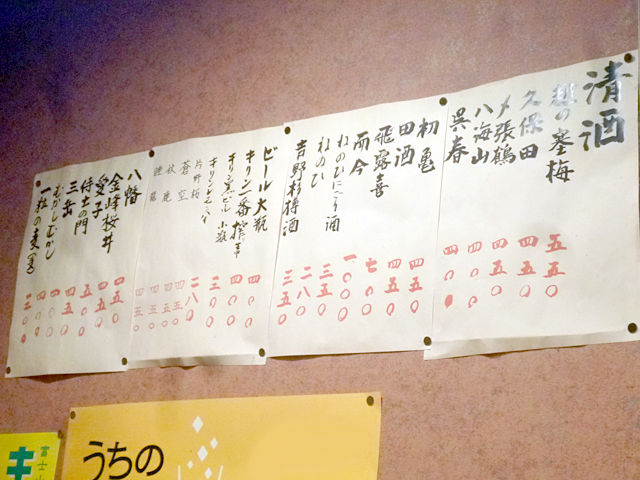 清酒
越の寒梅 五五〇
久保田 四五〇
〆張鶴 四五〇
八海山 四〇〇
呉春 四〇〇
初亀 四五〇
田酒 四五〇
飛露喜 七〇〇
而今 一〇〇〇
ねのひにごり酒 三五〇
ねのひ 二八〇
吉野杉樽酒 三五〇
ビール大瓶 四〇〇
キリン一番搾り 四〇〇
キリン黒ビール 小瓶 三〇〇
キリン 二八〇
片野桜 四五〇
蒼空 四〇〇
秋鹿 四五〇
睡龍 四五〇
八幡 四五〇
金峰桜井 四五〇
愛子 五〇〇
侍士の門 四五〇
三岳 四〇〇
むかしむかし 四〇〇
一粒の麦 三〇〇
うちの
富士山
キ